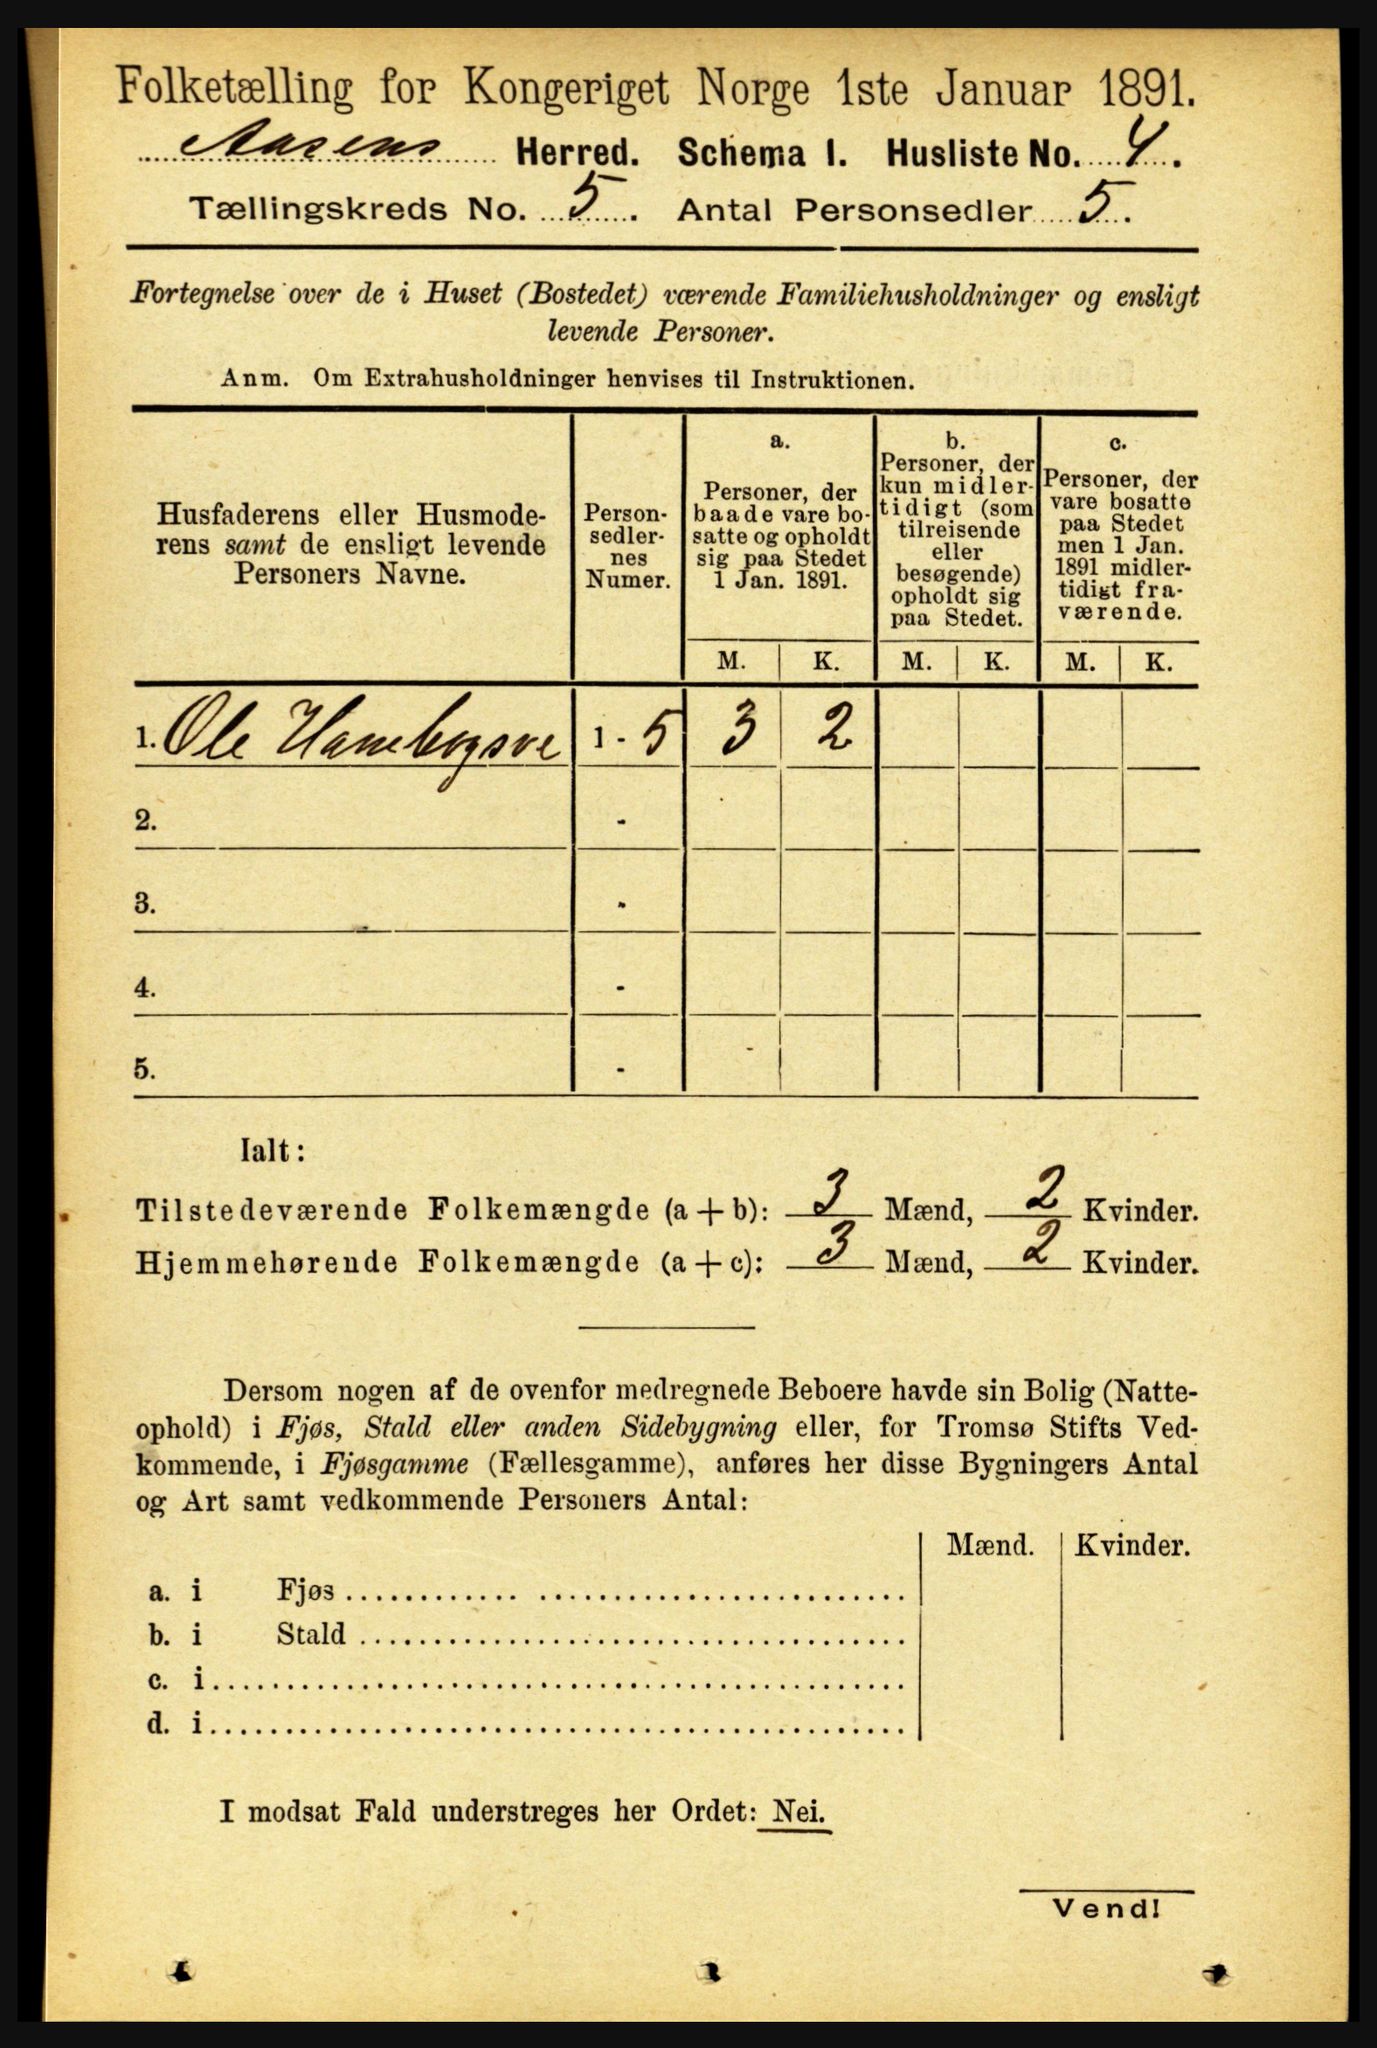 Folketælling for Kongeriget Norge 1ste Januar 1891.
Aasens Herred. Schema I. Husliste No. 4.
Tællingskreds No. 5. Antal Personsedler 5.
Fortegnelse over de i Huset (Bostedet) værende Familiehusholdninger og ensligt
levende Personer.
Anm. Om Extrahusholdninger henvises til Instruktionen.
Husfaderens eller Husmode-
rens samt de ensligt levende
Personers Navne.
Person-
sedler-
nes
Numer.
a.
Personer, der
baade vare bo-
satte og opholdt
sig paa Stedet
1 Jan. 1891.
b.
Personer, der
kun midler-
tidigt (som
tilreisende
eller
besøgende)
opholdt sig
paa Stedet.
c.
Personer, der
vare bosatte
paa Stedet
men 1 Jan.
1891 midler-
tidigt fra-
værende.
M. K. M. K. M. K.
1. Ole 1 - 5 3 2
2. -
3. -
4. -
5. -
Ialt:
Tilstedeværende Folkemængde (a + b): 3 Mænd, 2 Kvinder.
Hjemmehørende Folkemængde (a + c): 3 Mænd, 2 Kvinder.
Dersom nogen af de ovenfor medregnede Beboere havde sin Bolig (Natte-
ophold) i Fjøs, Stald eller anden Sidebygning eller, for Tromsø Stifts Ved-
kommende, i Fjøsgamme (Fællesgamme), anføres her disse Bygningers Antal
og Art samt vedkommende Personers Antal:
Mænd. Kvinder.
a. i Fjøs
b. i Stald
c. i
d. i
I modsat Fald understreges her Ordet: Nei.
Vend!